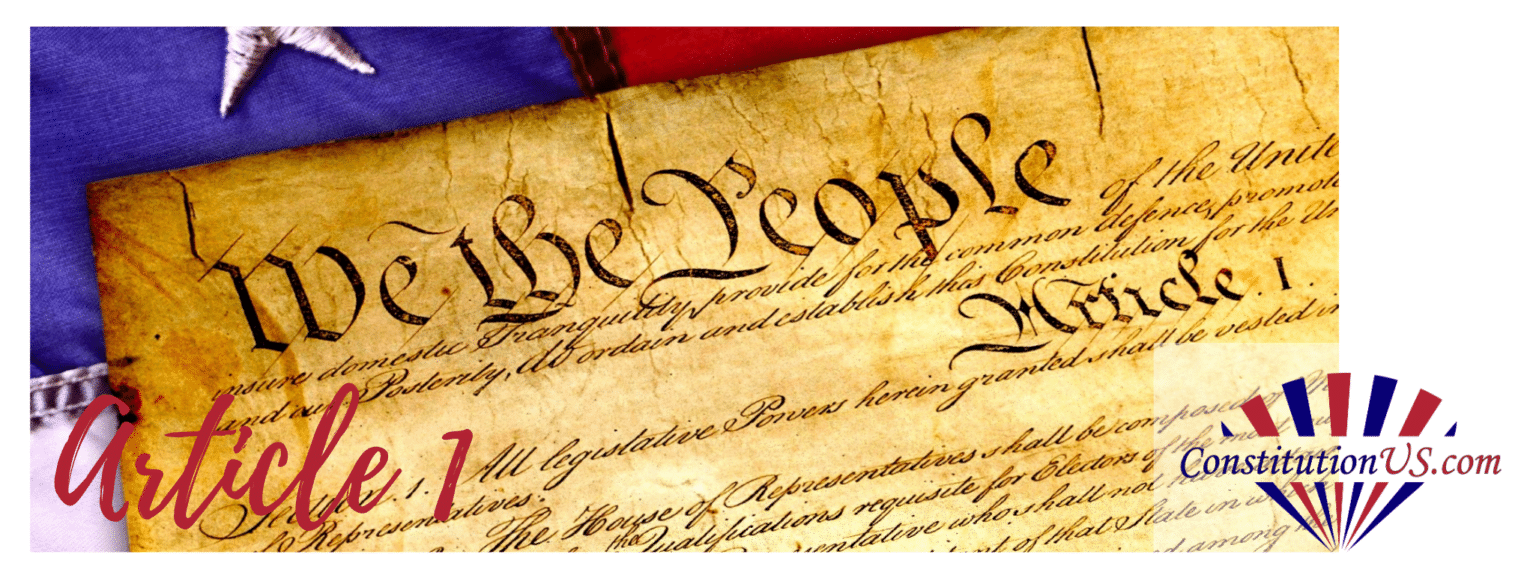 We the People of the Unite
insure domestic Tranquility, provide for the common defence, promote
and our Posterity, do ordain and establish this Constitution for the Un
Article. I.
Section. 1. All legislative Powers herein granted shall be vested in
of Representatives.
The House of Representatives shall be composed of
the Qualifications requisite for Electors of the most
who shall not
of that State in
among
Article 1
ConstitutionUS.com